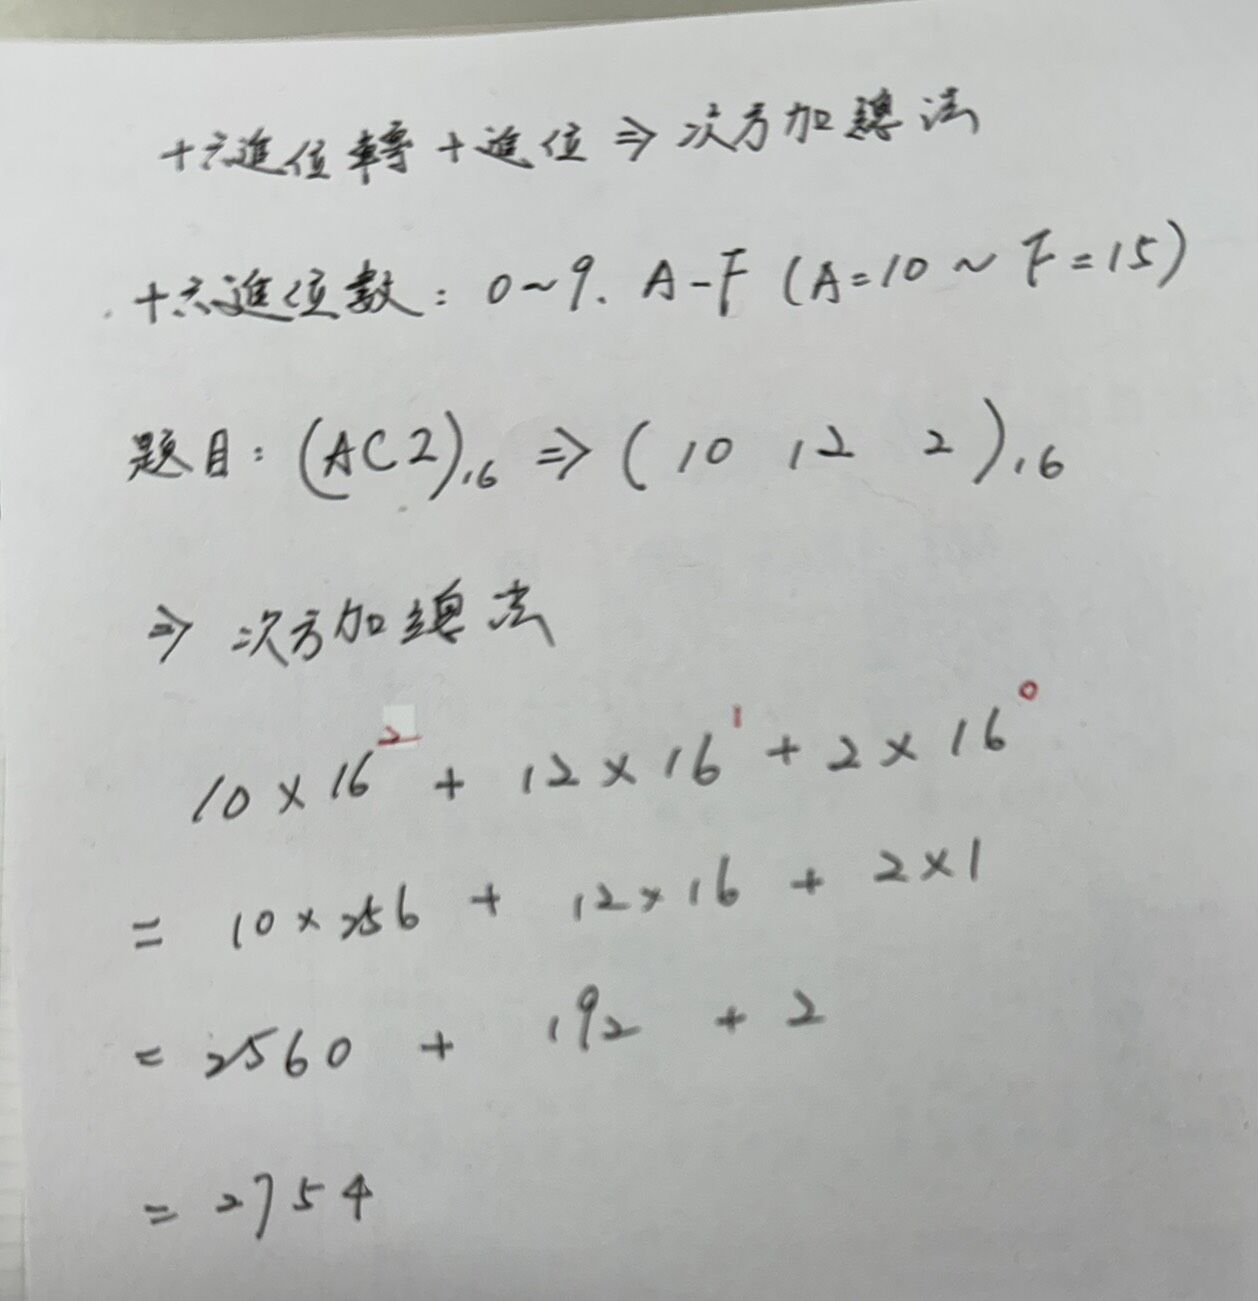 十六進位轉十進位 ⇒ 次方加總法
十六進位數：0~9. A-F (A=10 ~ F=15)
題目：(AC2)₁₆ ⇒ (10 12 2)₁₆
⇒ 次方加總法
10 × 16² + 12 × 16¹ + 2 × 16⁰
= 10 × 256 + 12 × 16 + 2 × 1
= 2560 + 192 + 2
= 2754